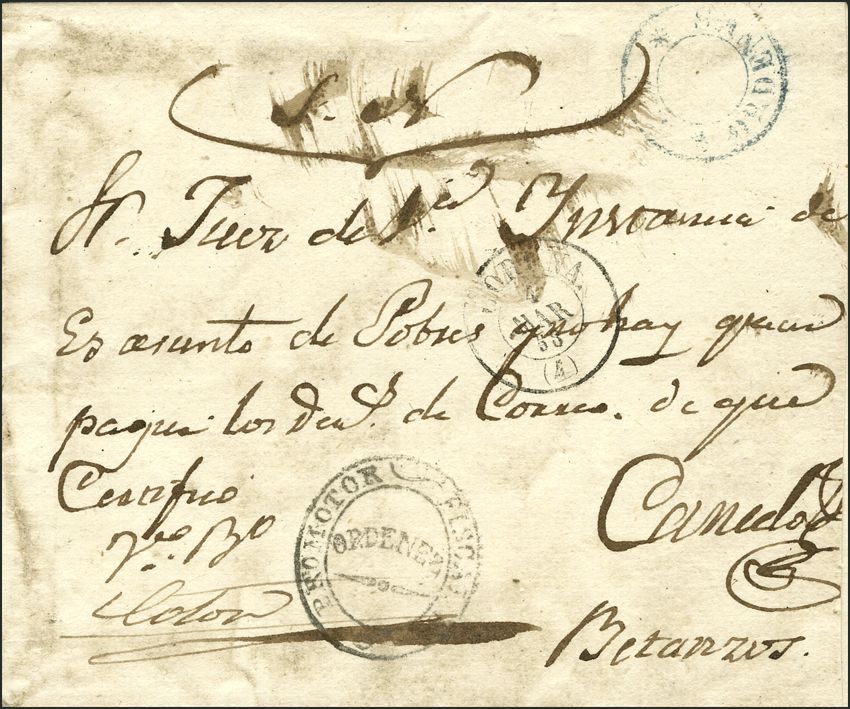 S. N.
Sr. Juez de 1.ª Ynstancia de
Es asunto de Pobres y no hay quien
pague los Der.s de Correo. de que
Certifico
V.º B.º
Canedo
Betanzos.
CORUÑA.
4
MAR
(4)
PROMOTOR FISCAL
ORDENES